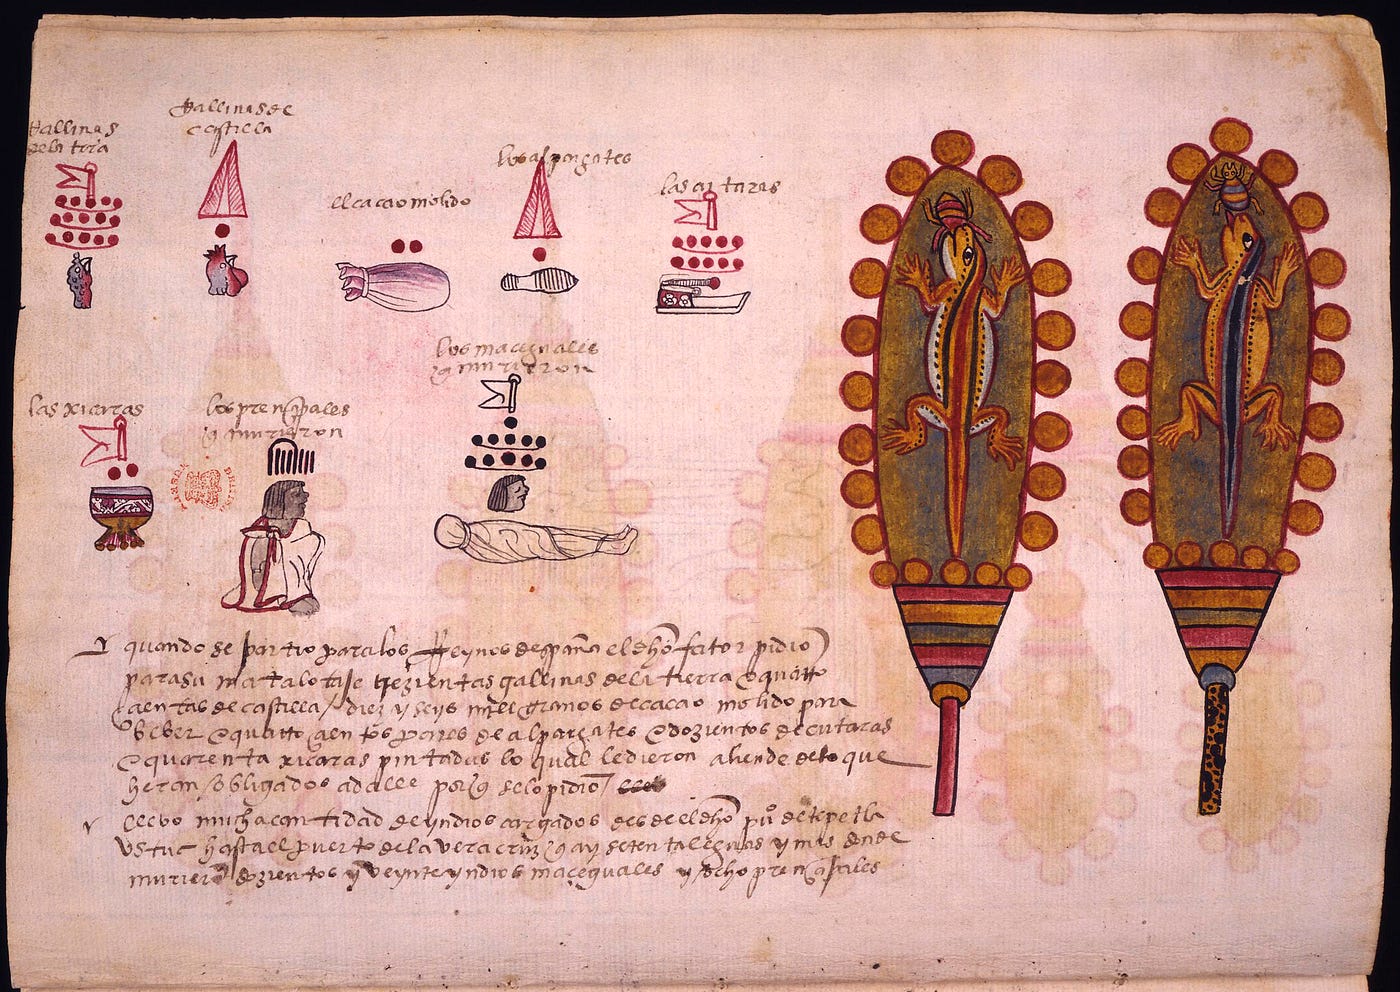 Gallinas
de la trra
Gallinas de
castilla
el cacao molido
los alpargates
las cutaras
los maceguales
q murieron
las xicaras
los prençipales
q murieron
quando se partio para los Reynos despaña el dho fator pidio
para su matalotaje trezientas gallinas de la tierra e quatro
çientas de castilla / diez y seys mill granos de cacao molido para
beber e quatroçientos pares de alpargates e dozientos de cutaras
e quarenta xicaras pintadas lo qual le dieron aliende de lo que
heran obligados a dalle porq se lo pidio
llevo mucha cantidad de yndios cargados desde el dho pu⁰ de tepetla
ustuc hasta el puerto de la veracruz q ay setenta leguas y mas donde
murierō dozientos y veynte yndios maçeguales y ocho prençipales